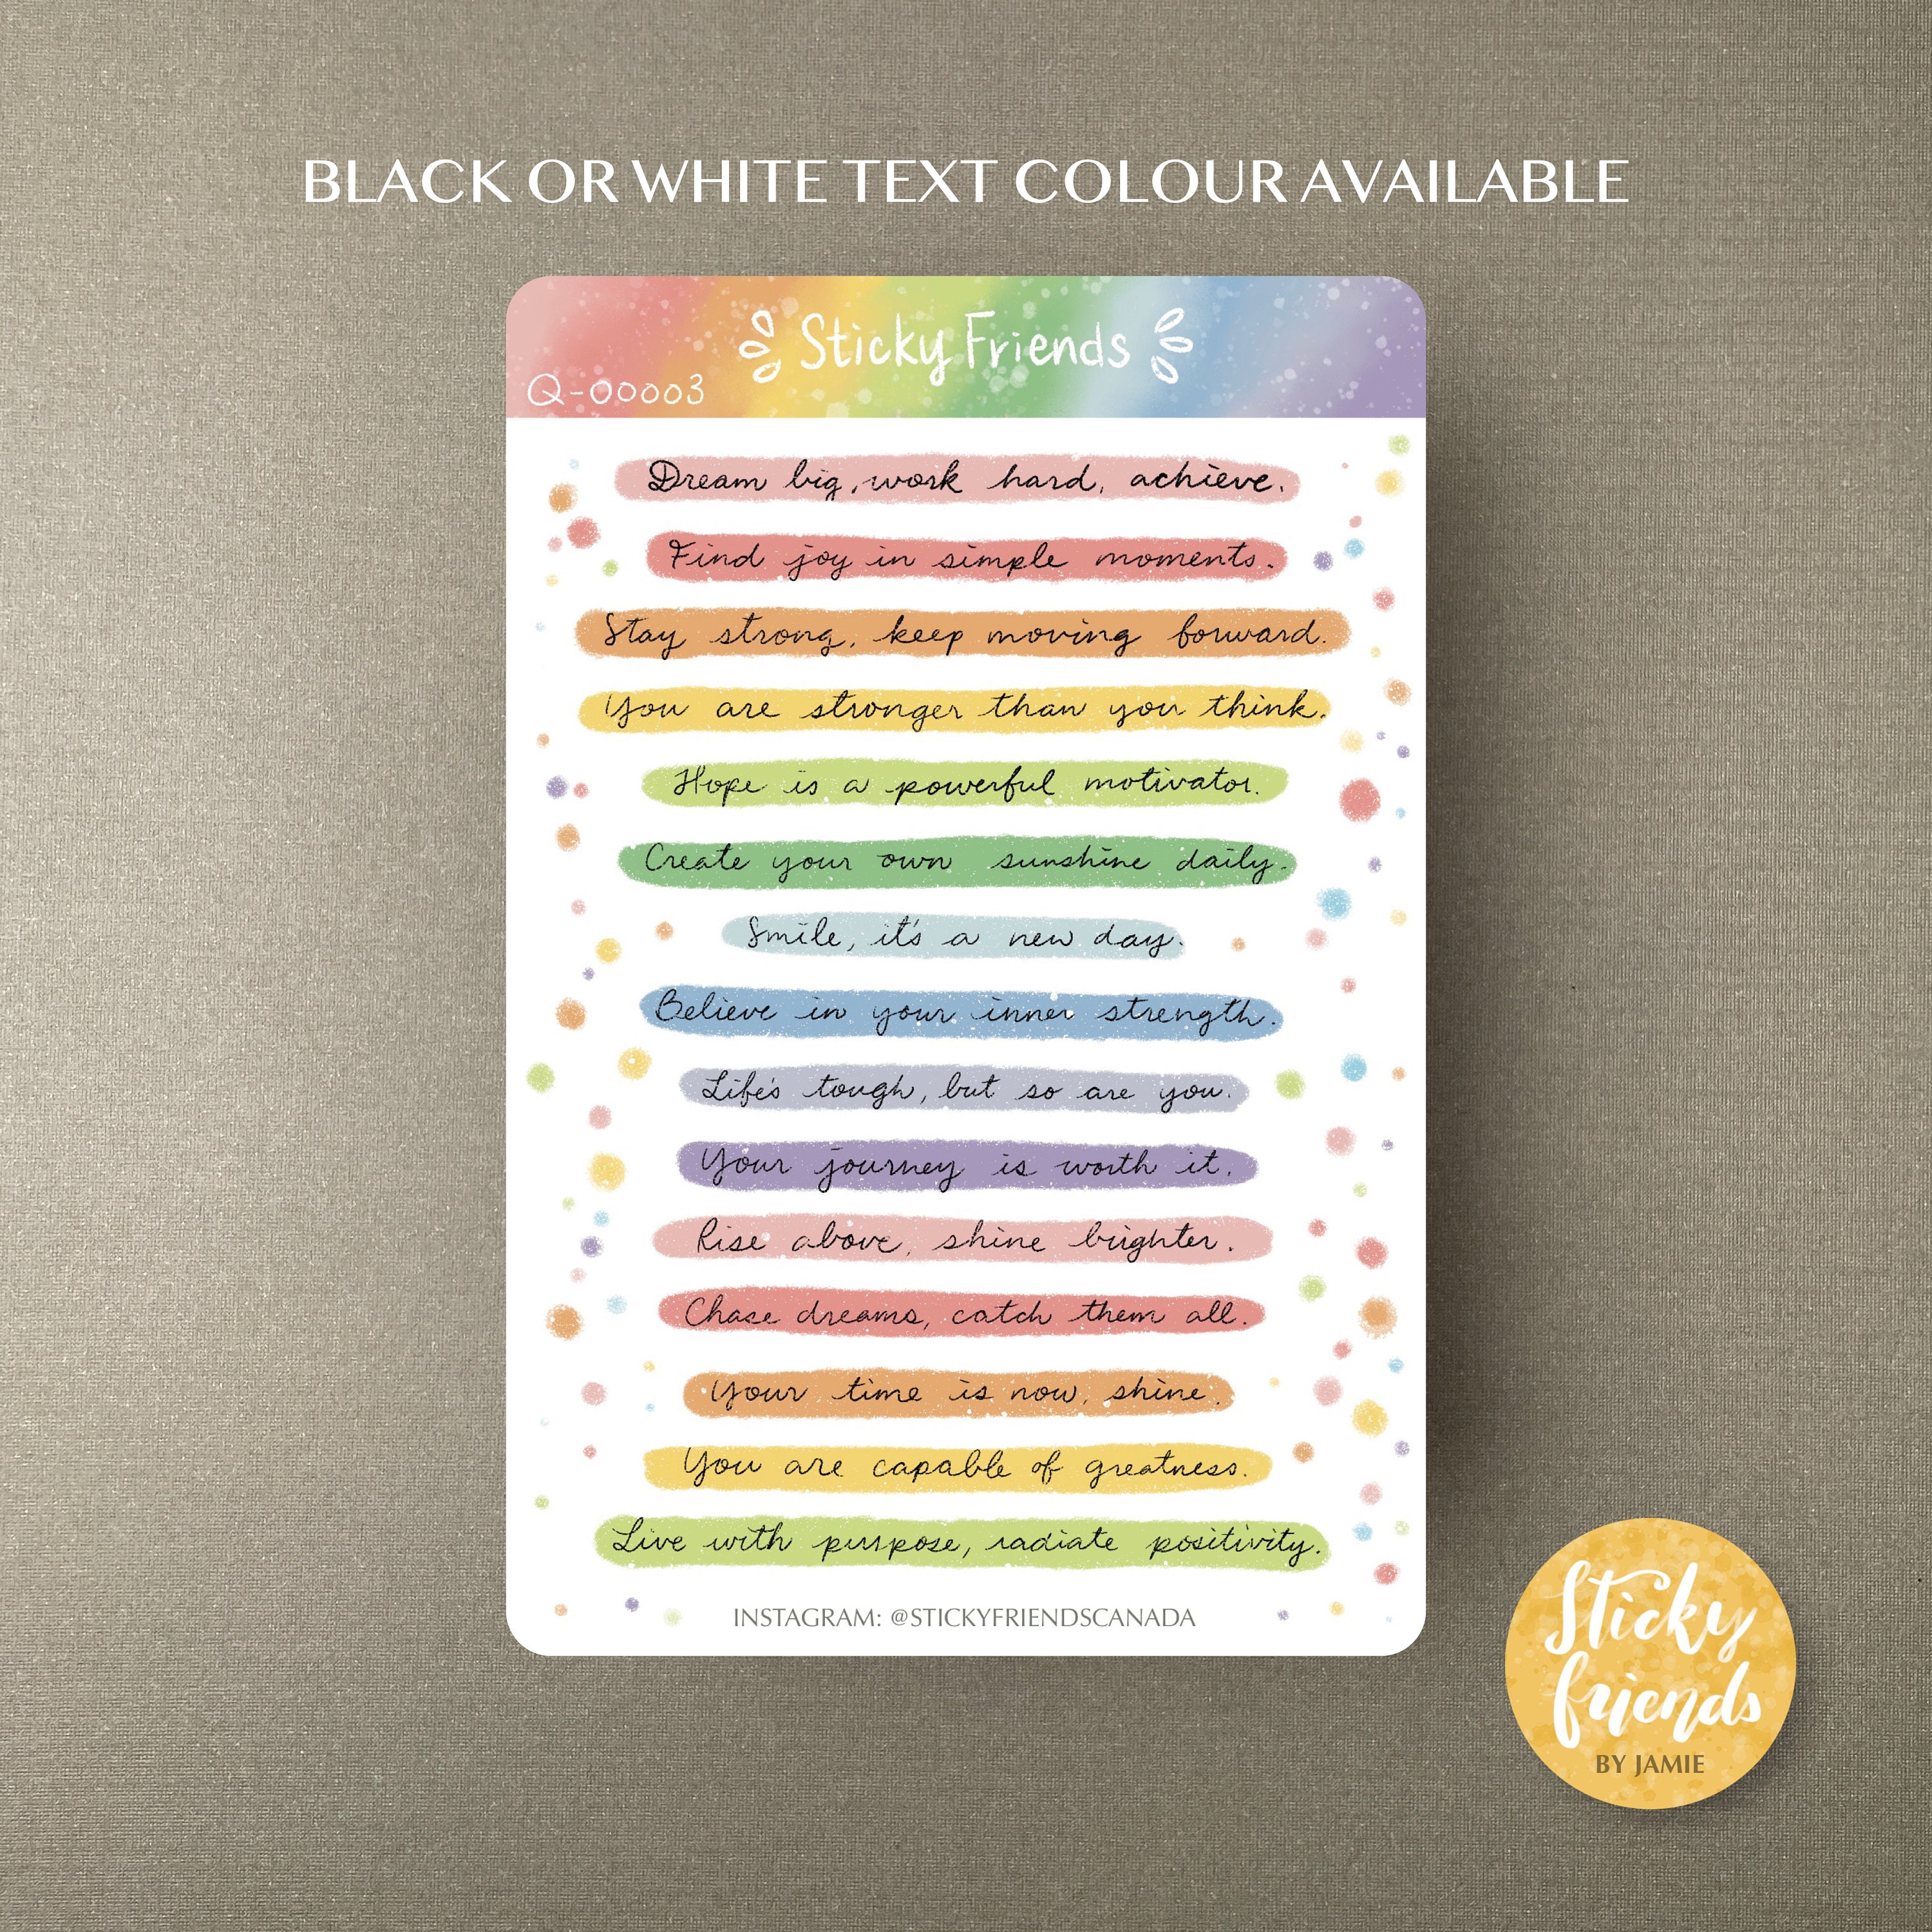 BLACK OR WHITE TEXT COLOUR AVAILABLE
Sticky Friends
Q-00003
Dream big, work hard, achieve.
Find joy in simple moments.
Stay strong, keep moving forward.
You are stronger than you think.
Hope is a powerful motivator.
Create your own sunshine daily.
Smile, it's a new day.
Believe in your inner strength.
Life's tough, but so are you.
Your journey is worth it.
Rise above, shine brighter.
Chase dreams, catch them all.
Your time is now, shine.
You are capable of greatness.
Live with purpose, radiate positivity.
INSTAGRAM: @STICKYFRIENDSCANADA
Sticky
friends
BY JAMIE